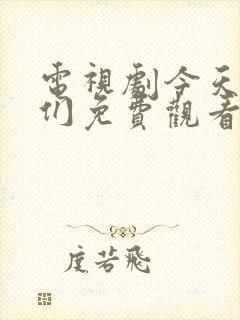 電視劇今天
们免費觀看
度若飛